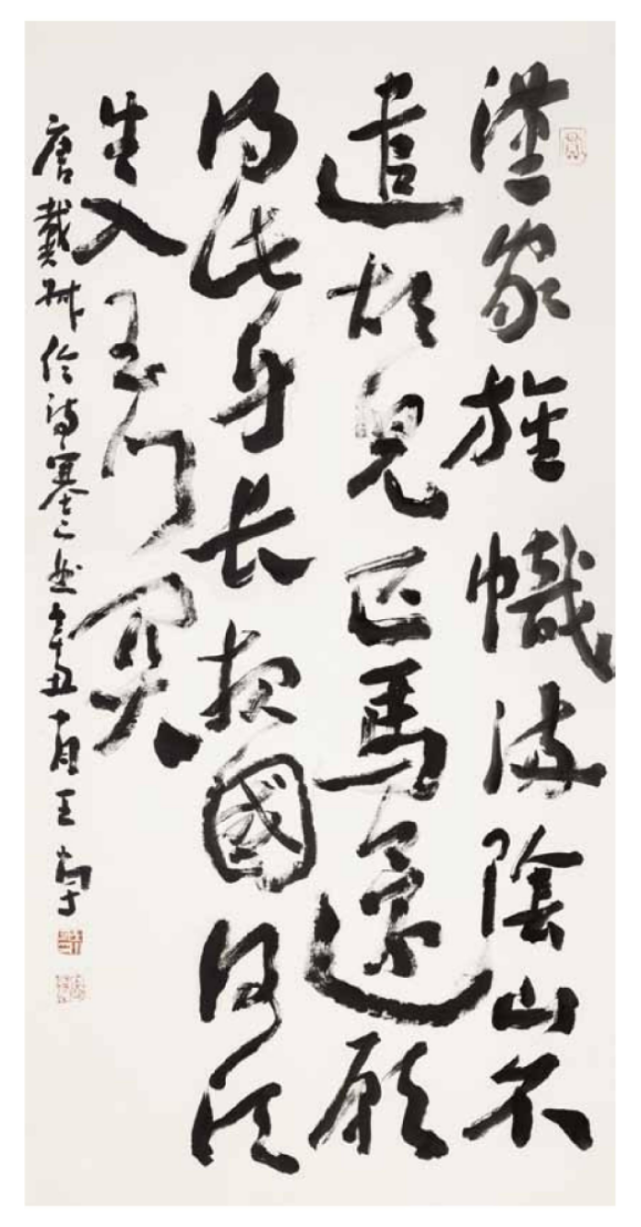 漢家旌幟滿陰山不
遣胡兒匹馬還願
得此身長報國何須
生入玉門關
唐戴叔倫詩塞上曲辛丑王